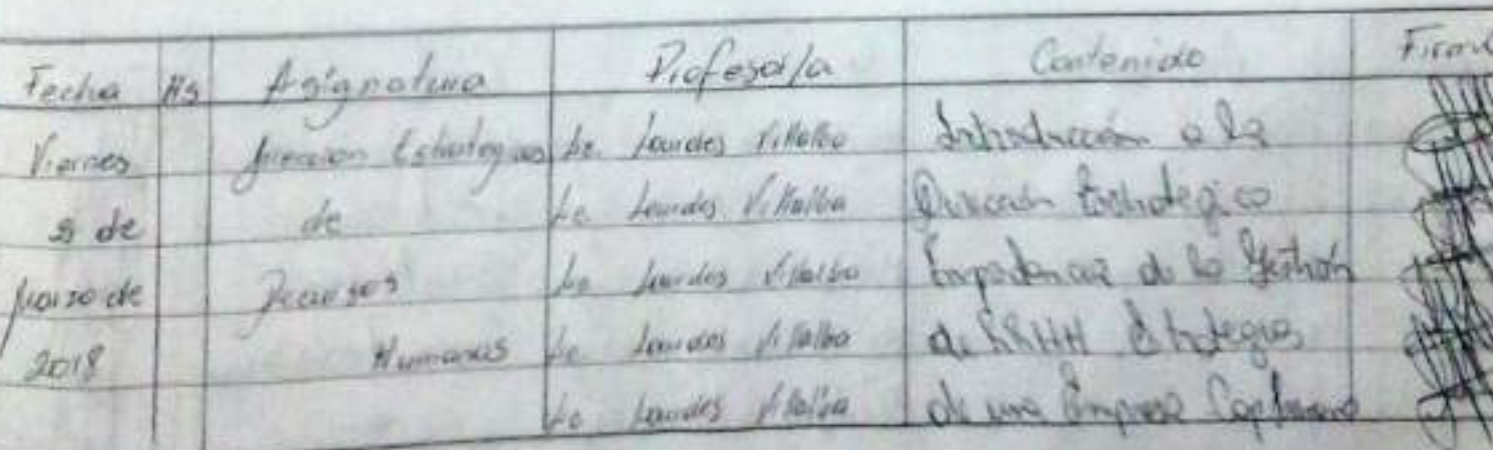 Fecha Hs Asignatura Profesor/a Contenido Firma
Viernes Estrategica Lic. Lourdes Villalba Introducción a la
de de Lic. Lourdes Villalba Dirección Estrategica
Marzo de Recursos Lic. Lourdes Villalba de la Gestión
2018 Humanos Lic. Lourdes Villalba de RRHH Estrategias
Lic. Lourdes Villalba de una Empresa